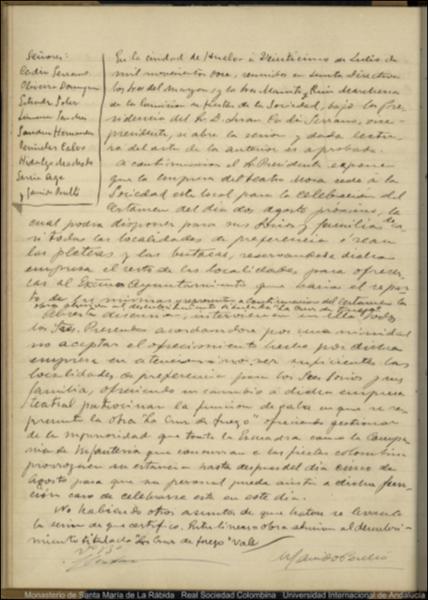 Señores:
Cordin Serrano
Oliveira Domínguez
Sánchez
Sánchez Hernández
Calvo
Hidalgo Machado
García
y Garrido Perelló
En la ciudad de Huelva a Veinticinco de Julio de
mil novecientos doce, reunidos en Junta Directiva
los Sres del margen y los Sres Ruiz Marchena
de la Comisión de fiestas de la Sociedad, bajo la Pre
sidencia del Sr. D. Juan Serrano, vice-
presidente, se abre la sesión y dada lectu-
ra del acta de la anterior es aprobada.
A continuación el Sr. Presidente expone
que la Empresa del teatro Mora cede á la
Sociedad este local para la celebración del
Certamen del día dos agosto próximo, la
cual podrá disponer para sus socios y familias de
todas las localidades de preferencia ó sean
las plateas y las butacas, reservandose dicha
empresa el resto de las localidades, para ofrecer-
las al Excmo Ayuntamiento que haría el repar-
to de las mismas y a continuación del Certamen la
obra alusiva al descubrimiento titulada "La Cruz de fuego"
Abierta discusión, intervienen en ella todos
los Sres. Presentes acordandose por unanimidad
no aceptar el ofrecimiento hecho por dicha
empresa en atención á no ser suficientes las
localidades de preferencia para los Sres Socios y sus
familia, ofreciendo en cambio á dicha empresa
teatral patrocinar la función de gala en que se re-
presente la obra "La Cruz de fuego" ofreciendo gestionar
de la Superioridad que toda la Escuadra como la Compa
ñía de Infantería que concurran a las fiestas colombinas
prorroguen su estancia hasta despues del día cinco de
Agosto para que su personal pueda asistir a dicha fun-
ción caso de celebrarse esta en este día.
No habiendo otros asuntos de que tratar se levanta
la sesión de que certifico. Entre lineas= obra alusiva al descubri-
miento titulada "La Cruz de fuego" Vale
Vº Bº
Monasterio de Santa María de La Rábida Real Sociedad Colombina Universidad Internacional de Andalucía